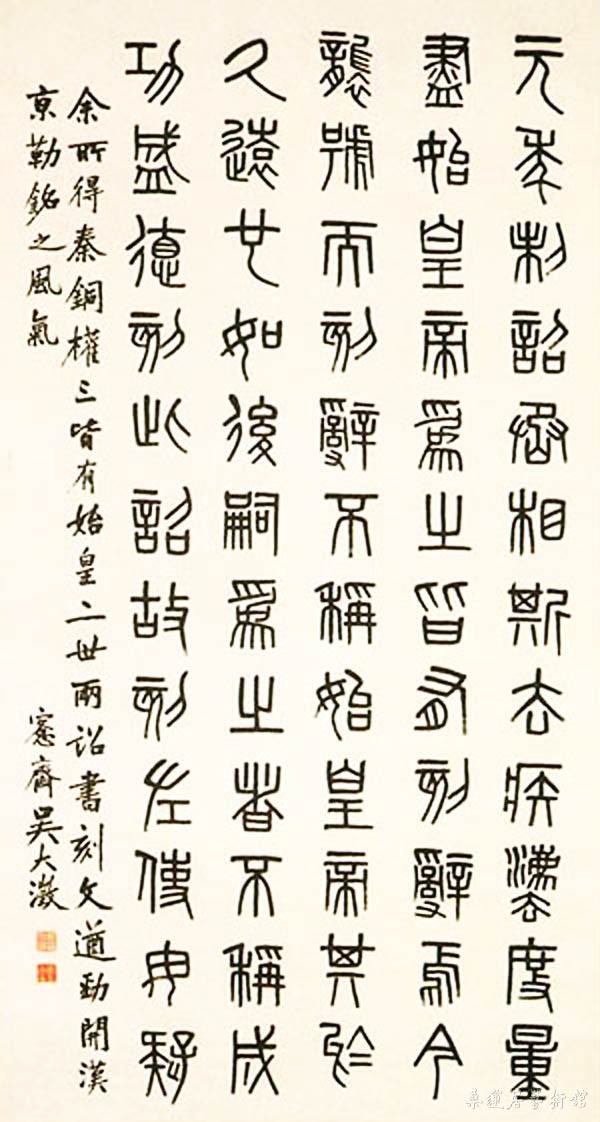 元年制詔丞相斯去疾灋度量
盡始皇帝爲之皆有刻辭焉今
襲號而刻辭不稱始皇帝其於
久遠也如後嗣爲之者不稱成
功盛德刻此詔故刻左使毋疑
余所得秦銅權三皆有始皇二世兩詔書刻文遒勁開漢
京勒銘之風氣
愙齋吳大澂
桑蓮居藝術館